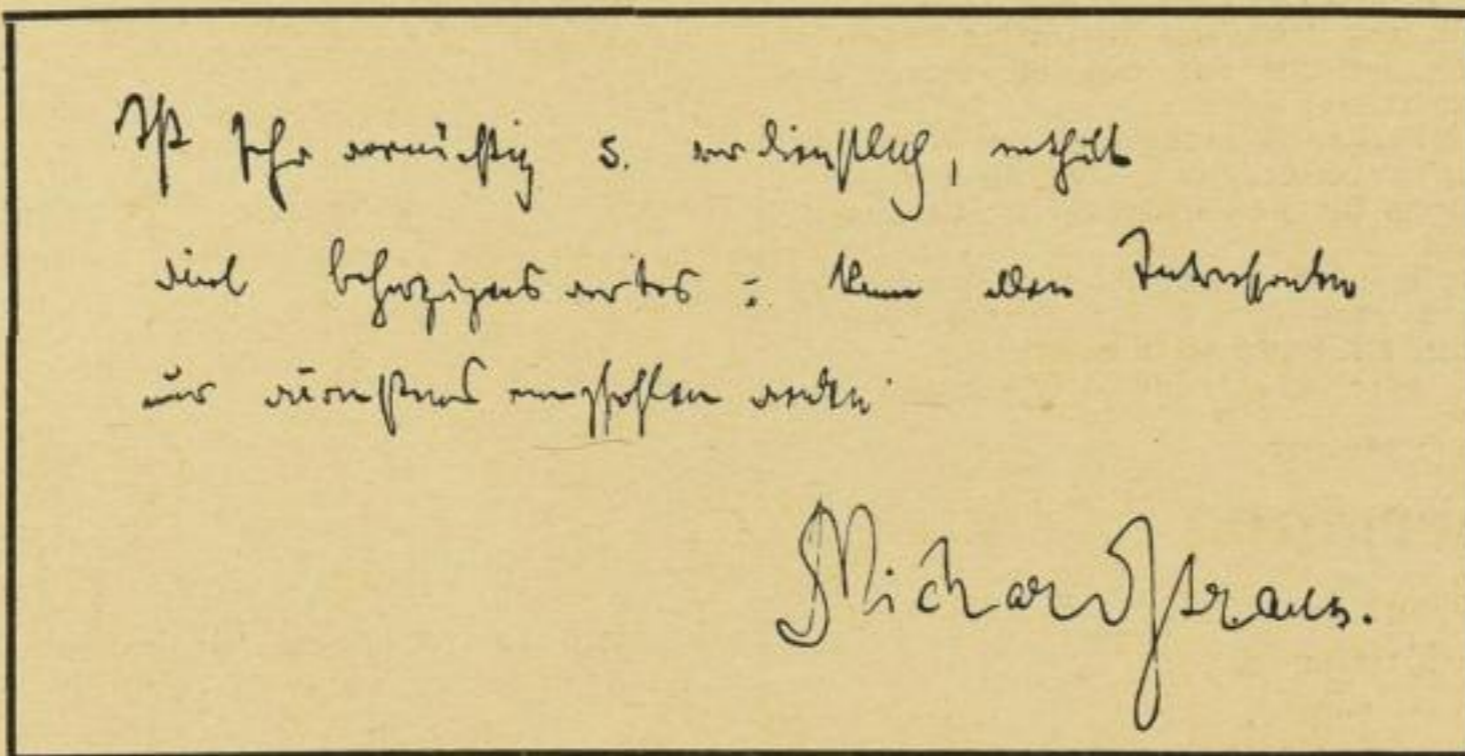 Ist sehr vernünftig u. verdienstlich, enthält
viel beherzigenswertes: kann allen Interessenten
nur wärmstens empfohlen werden.
Richard Strauss.